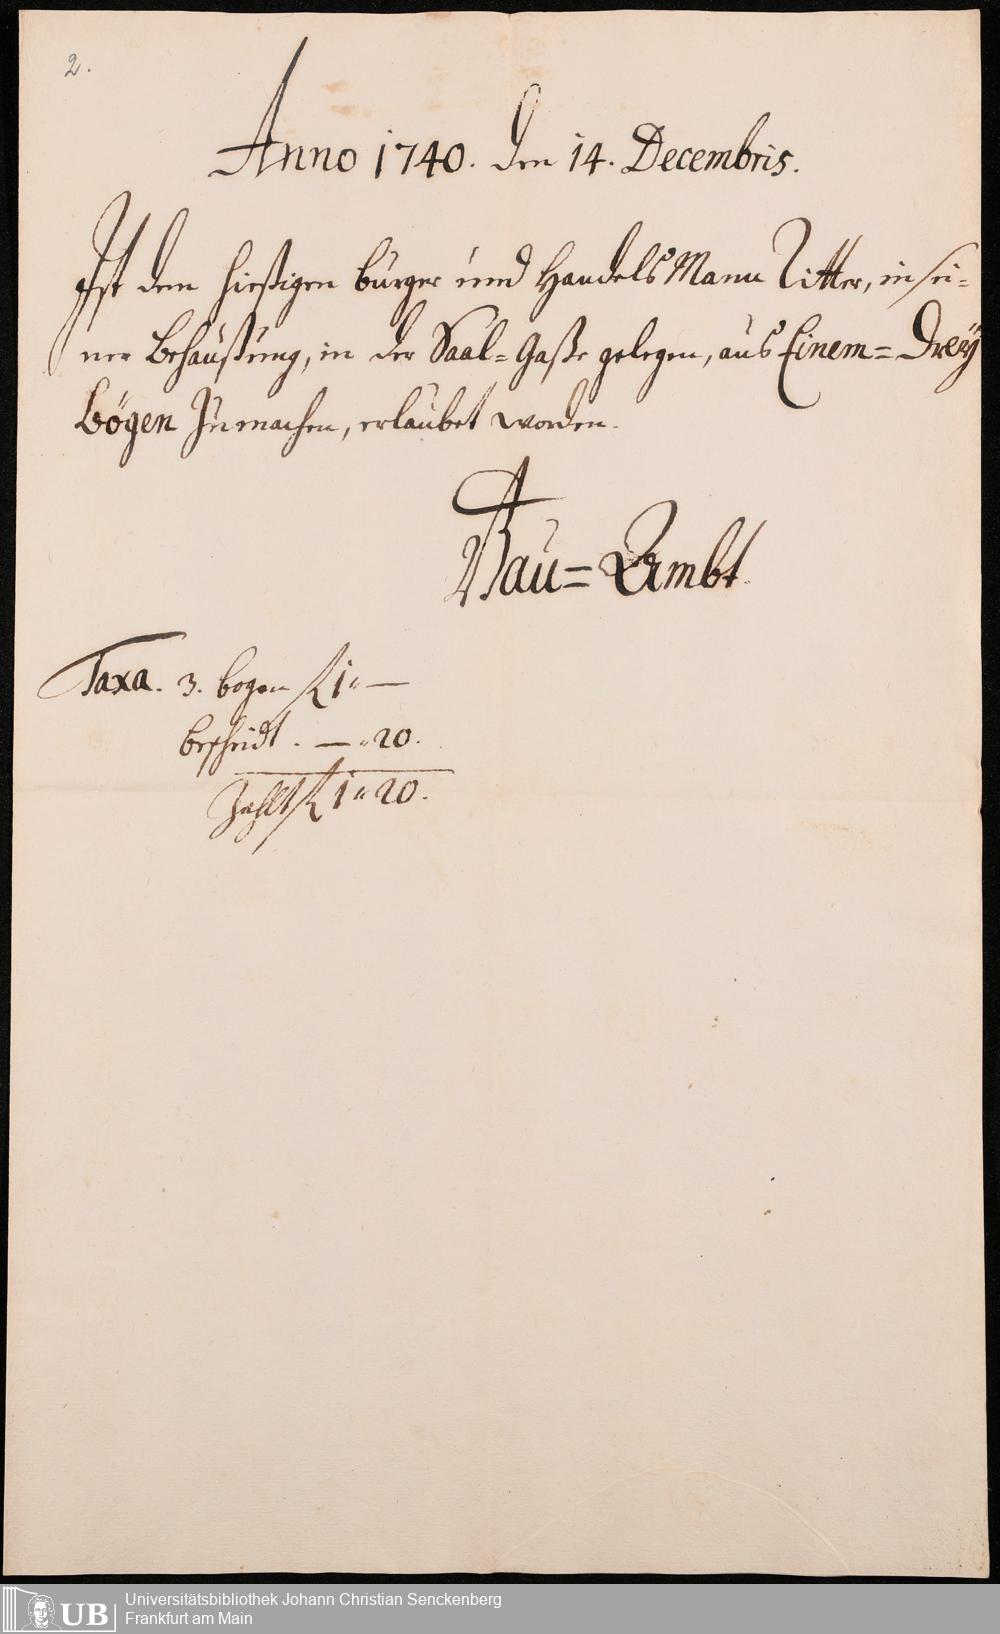 2.
Anno 1740. den 14. Decembris.
Ist dem hießigen burger und Handels Mann Ritter, in sei-
ner Behaußung, in der Saal-Gaße gelegen, aus Einem = Dreÿ
bögen Zu machen, erlaubet worden.
Bau = Ambt.
Taxa. 3. bogen f 1 " —
bescheidt. — " 20.
Zahlt f 1 " 20.
UB
Universitätsbibliothek Johann Christian Senckenberg
Frankfurt am Main